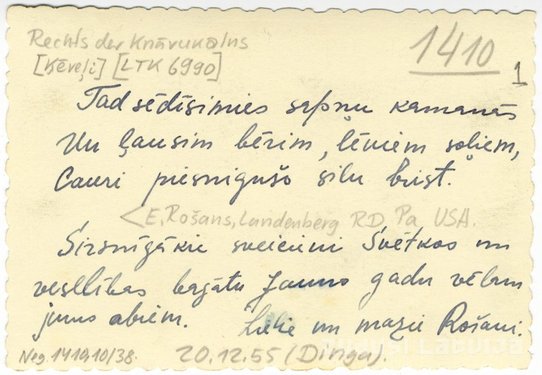 Rechts der Knāvukalns
[Ķēveļi] [LTK 6990]
1410
1
Tad sēdīsimies sapņu kamanās
Un ļausim bērim, lēniem soļiem,
Cauri piesnigušo silu brist.
<E. Rošans, Landenberg RD, Pa USA.
Sirsnīgākie sveicieni Svētkos un
veselības bagātu Jauno gadu vēlam
jums abiem. Lielie un mazie Rošani.
Neg 1419,10/38. 20.12.55 (Dinga).